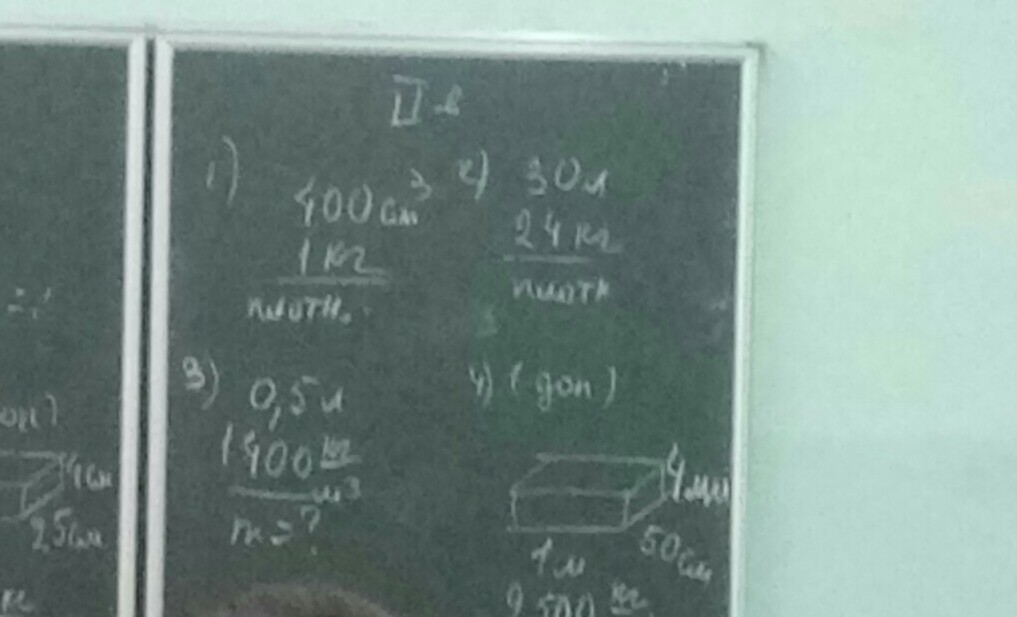 II в
1) 400 см³
1 кг
плотн.
2) 30 л
24 кг
плотн
3) 0,5 л
1400 кг/м³
m = ?
4) (доп)
4 мм
50 см
1 м
2500 кг
4 см
25 см